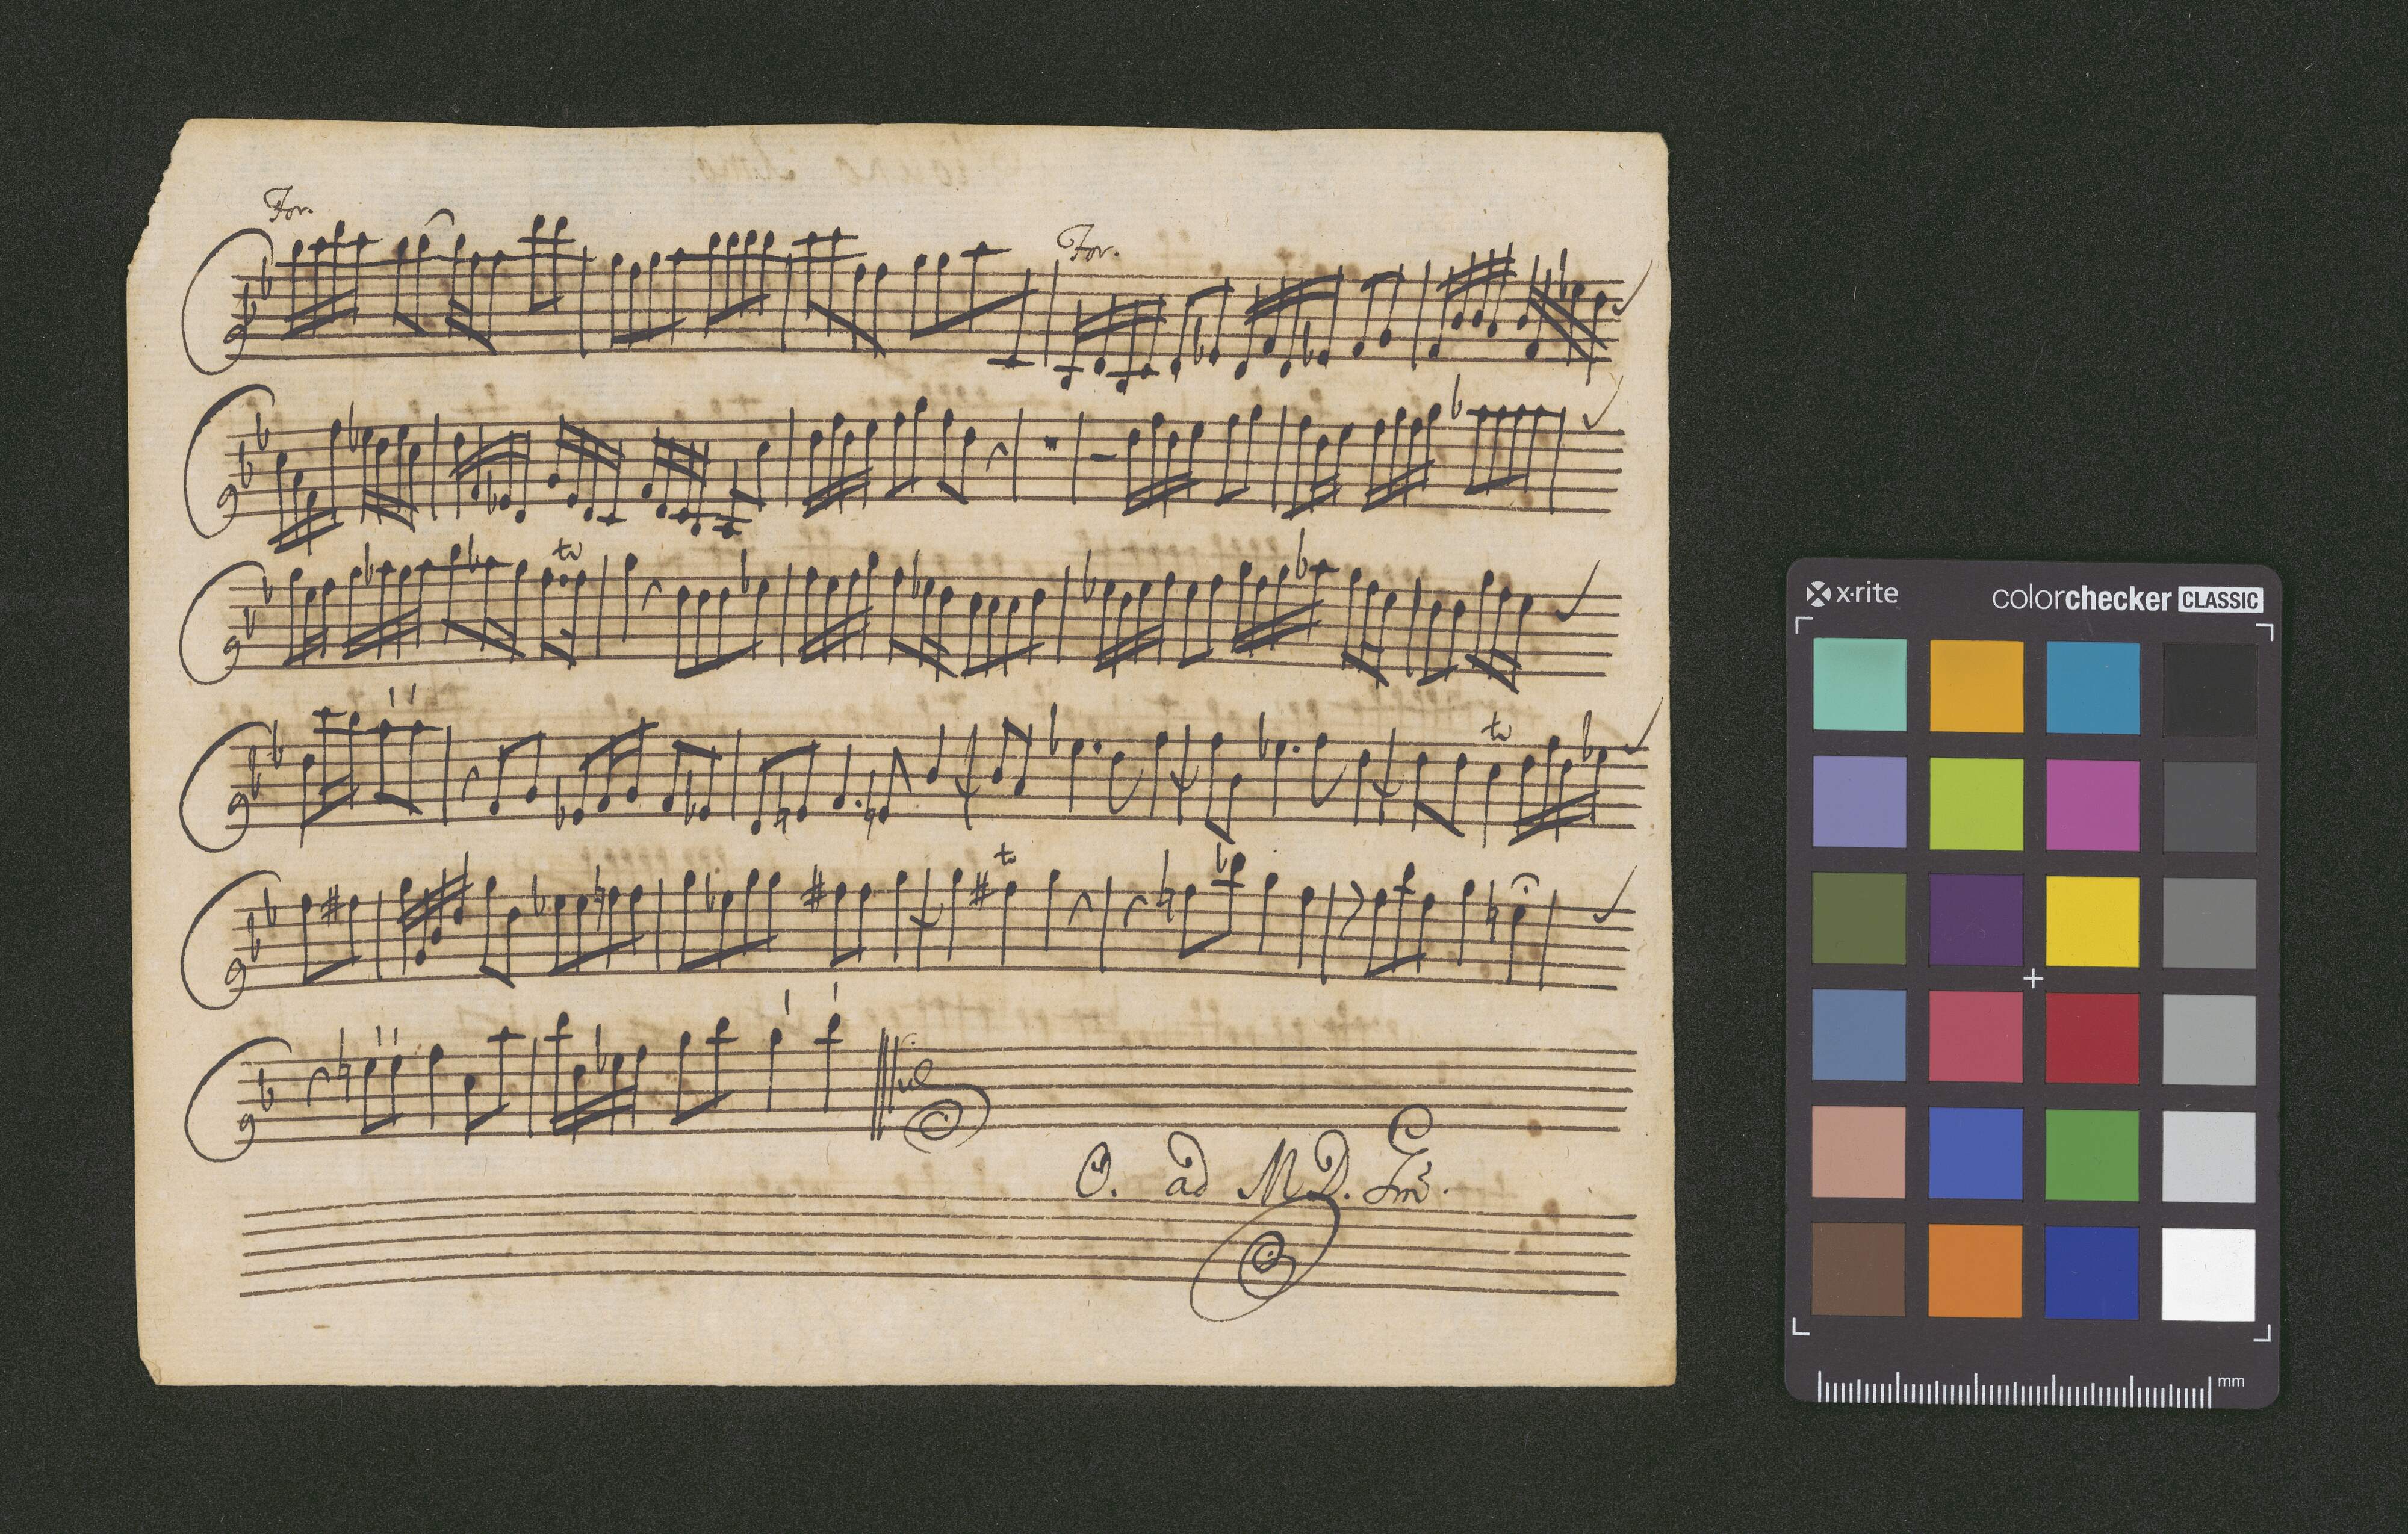 For.
For.
tr
tr
tr
O. ad M D. G
x·rite
colorchecker CLASSIC
mm